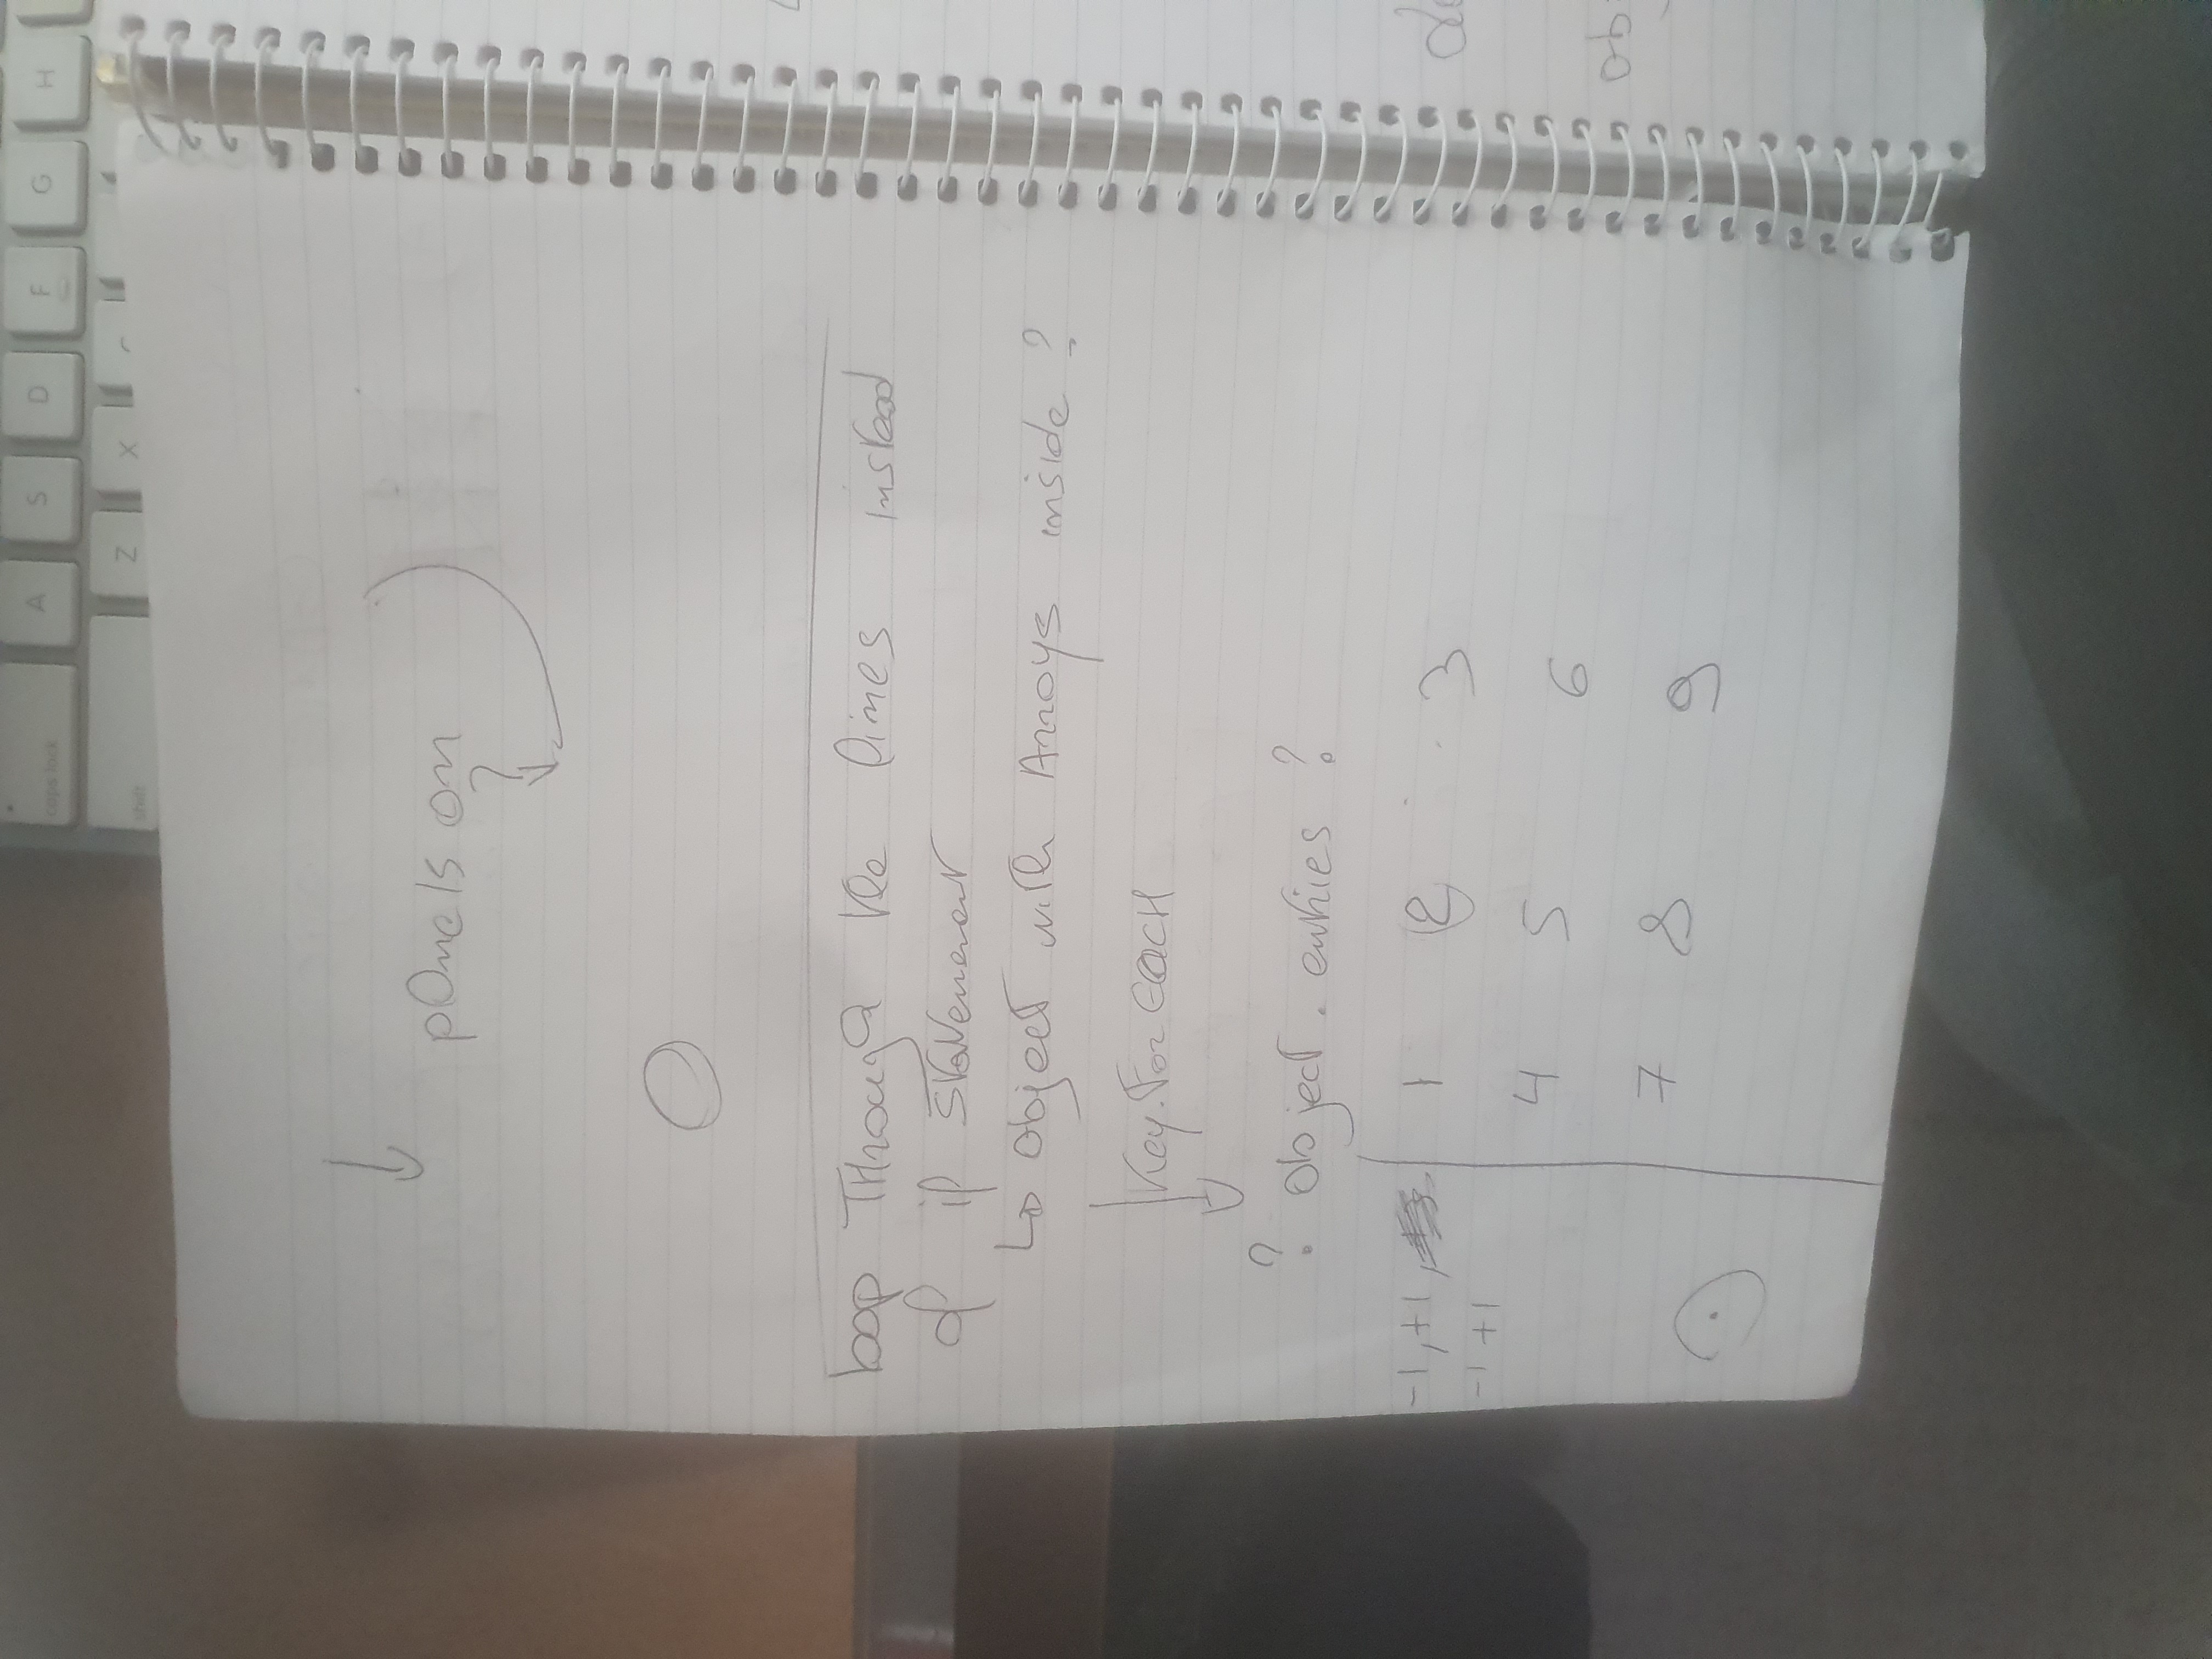 caps lock A S D F G H
shift Z X
pAnels on
?
loop THrough the lines instead
of if statement
↳ object with Arrays inside ?
Key.For EACH
? object . entries ?
-1, +1,
-1 +1
1 2 3
4 5 6
7 8 9
ob